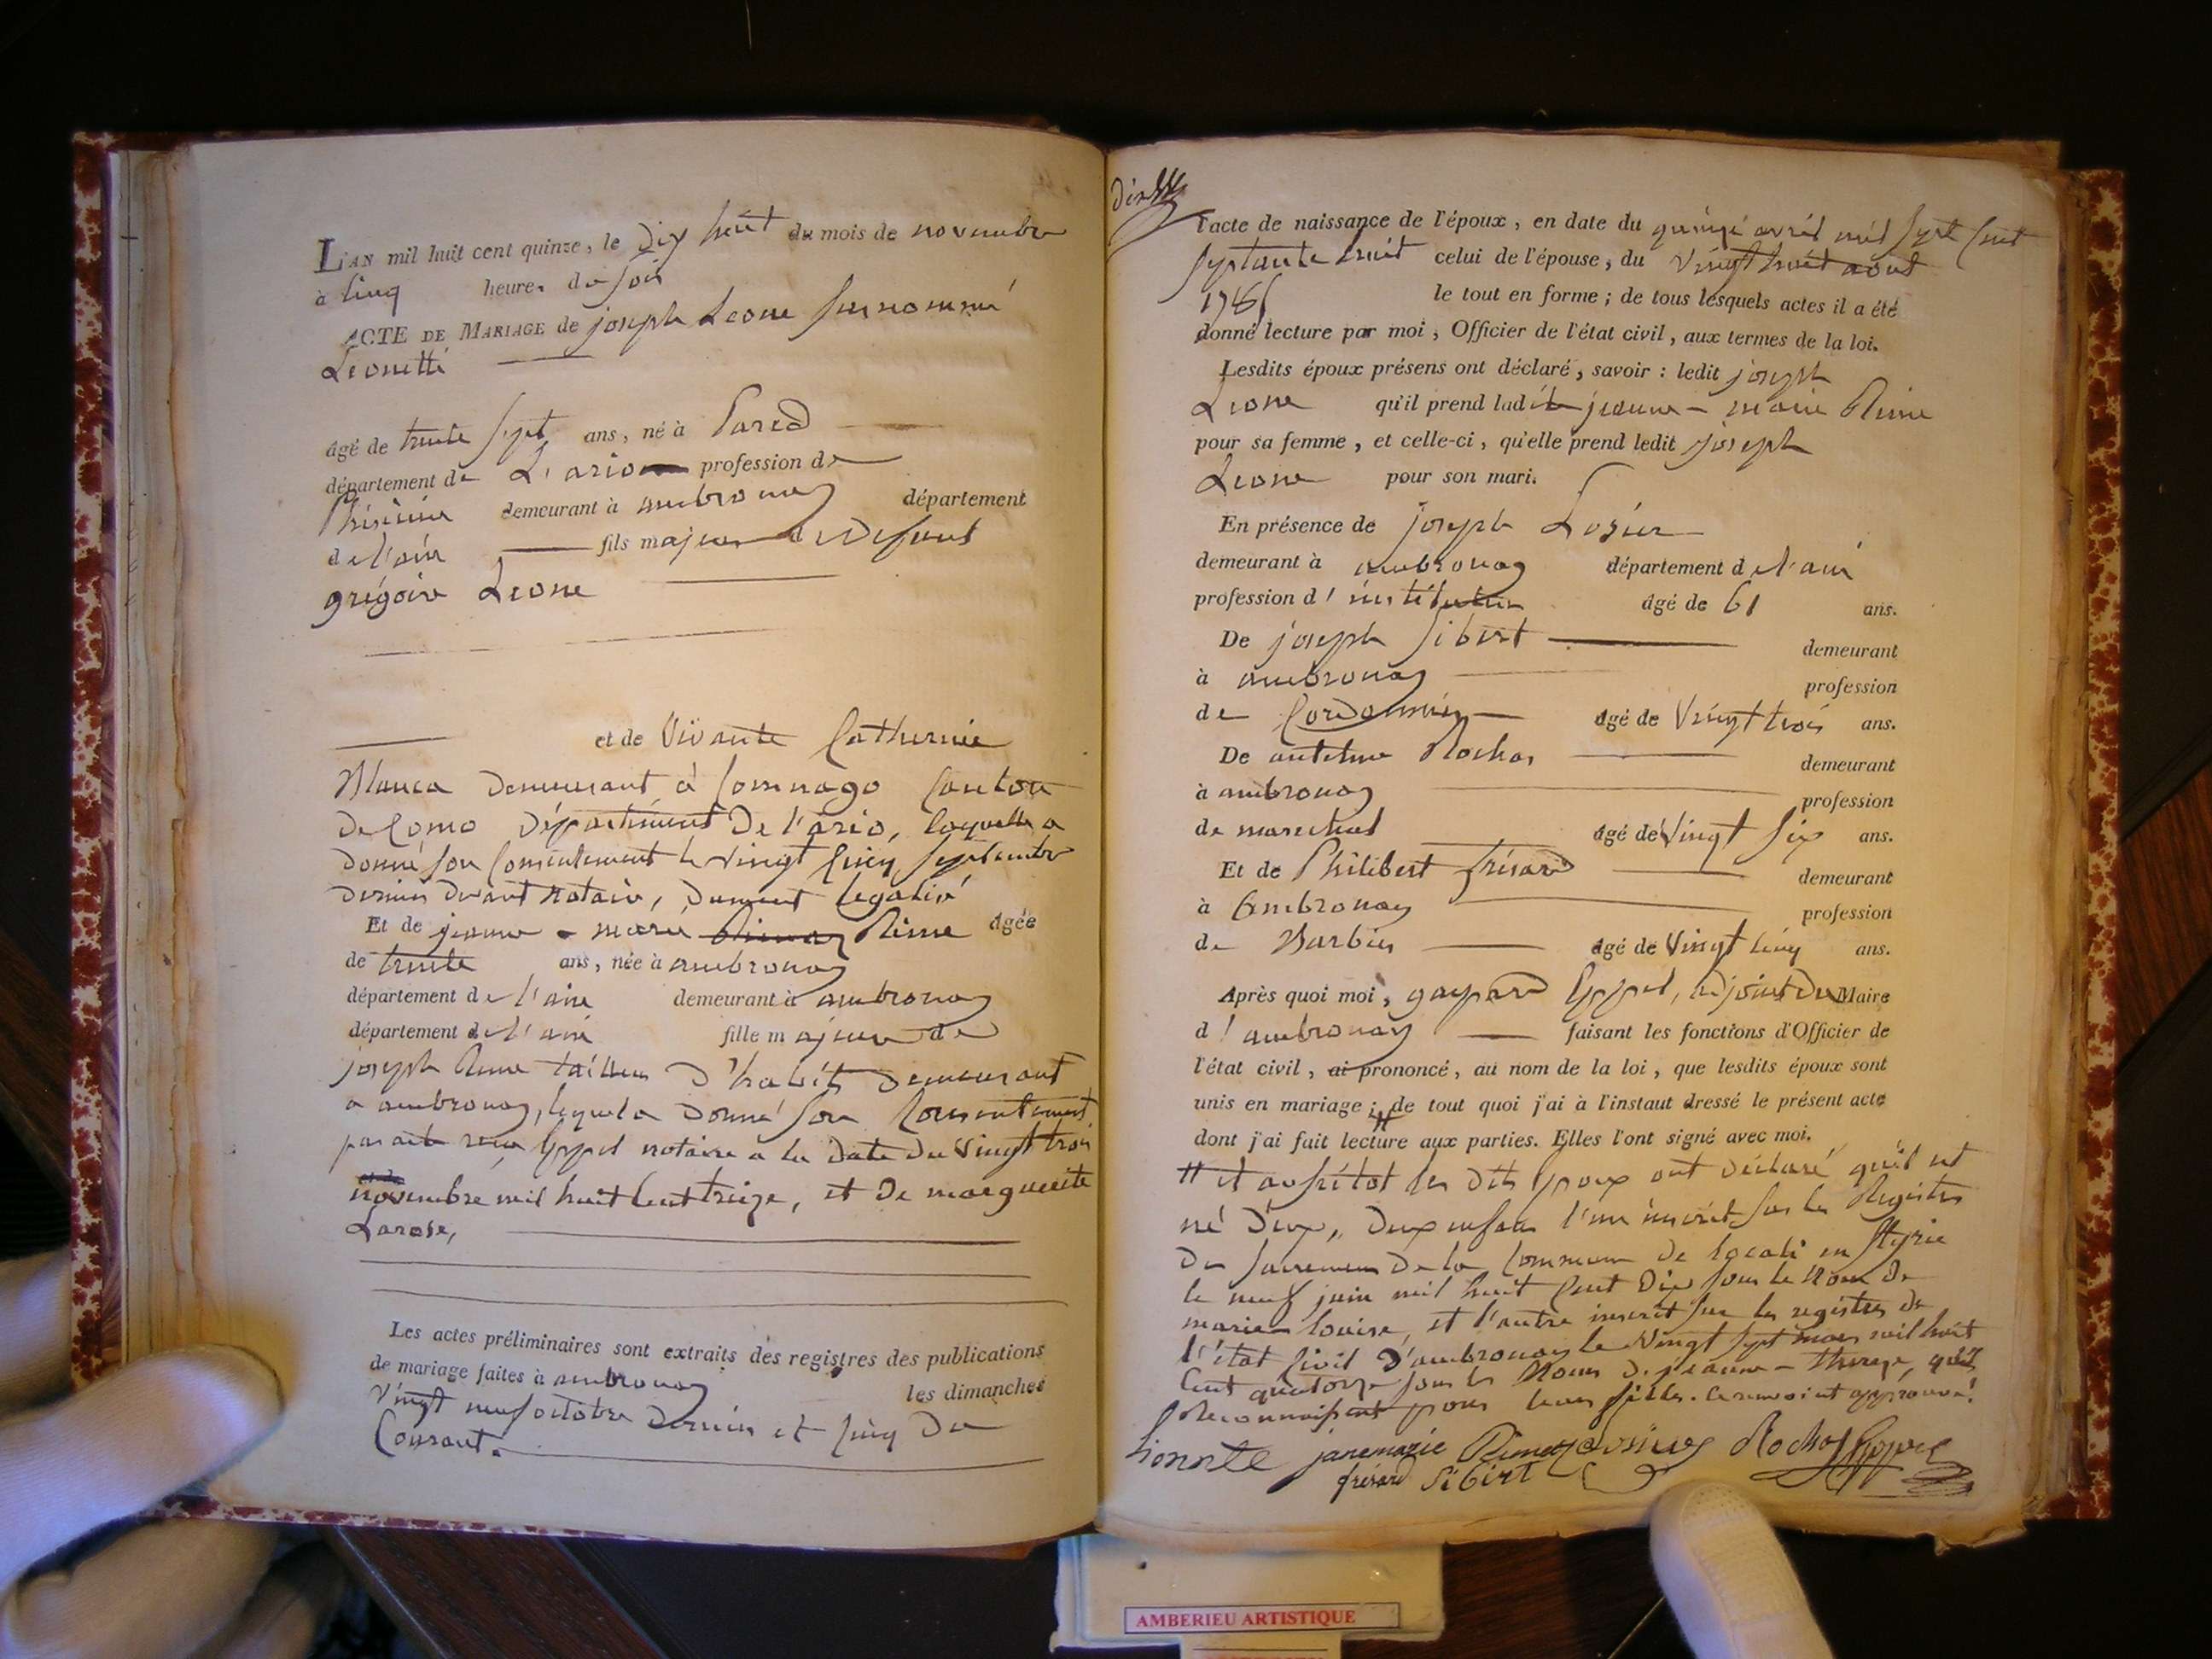 L'AN mil huit cent quinze, le dix huit du mois de novembre
à cinq heures du soir
ACTE DE MARIAGE de joseph Leone surnommé
Leonetti
âgé de trente sept ans, né à
département de L'ario profession de
demeurant à ambronay département
de l'ain fils majeur de Defunt
grégoire Leone
et de Vivante Catherine
Blanca Demeurant à Canton
De Como Département De l'ario, laquelle a
donné son Consentement le vingt cinq Septembre
dernier devant Notaire, dument legalisé
Et de jeanne - marie Rime âgée
de trente ans, née à ambronay
département de l'ain demeurant à ambronay
département de l'ain fille majeure de
joseph Rime tailleur D'habits Demeurant
a ambronay, lequel a Donné son Consentement
par acte reçu Eppel notaire a la Date du Vingt trois
novembre mil huit Cent treize, et De marguerite
Larose,
Les actes préliminaires sont extraits des registres des publications
de mariage faites à ambronay les dimanches
Vingt neuf octobre Dernier et Cinq Du
Courant.
l'acte de naissance de l'époux, en date du quinze avril mil Sept Cent
Septante huit celui de l'épouse, du Vingt huit aout
le tout en forme ; de tous lesquels actes il a été
donné lecture par moi, Officier de l'état civil, aux termes de la loi.
Lesdits époux présens ont déclaré, savoir : ledit joseph
Leone qu'il prend ladite jeanne - marie Rime
pour sa femme, et celle-ci, qu'elle prend ledit joseph
Leone pour son mari.
En présence de joseph Losier
demeurant à ambronay département de l'ain
profession d'instituteur âgé de 61 ans.
De joseph Sibert demeurant
à ambronay profession
de Cordonnier âgé de Vingt trois ans.
De antelme Rochas demeurant
à ambronay profession
de marechal âgé de Vingt Six ans.
Et de Philibert frisard demeurant
à Ambronay profession
de Barbier âgé de Vingt cinq ans.
Après quoi moi, gaspard Eppel, adjoint Du Maire
d'ambronay faisant les fonctions d'Officier de
l'état civil, ai prononcé, au nom de la loi, que lesdits époux sont
unis en mariage ; # de tout quoi j'ai à l'instant dressé le présent acte
dont j'ai fait lecture aux parties. Elles l'ont signé avec moi.
# et aussitot les dits Epoux ont Déclaré qu'il est
né D'eux, Deux enfans l'un inscrit sur les Registres
De la Commune De en Styrie
le neuf juin mil huit Cent Dix sous le Nom De
marie louise, et l'autre inscrit sur les registres de
l'état Civil D'ambronay le Vingt Sept mars mil huit
Cent quatorze sous les Noms De jeanne - therese, qu'ils
Reconnaissent pour leurs filles. Ce renvoi est approuvé.
lionnete janemarie Rime Rochas Eppel
frisard Sibert
AMBERIEU ARTISTIQUE